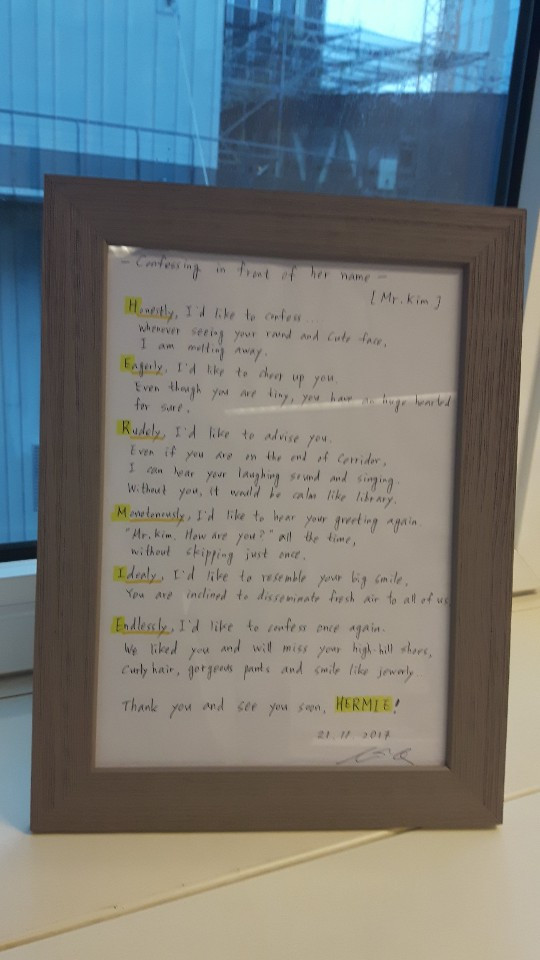 - Confessing in front of her name -
[Mr. Kim]
Honestly, I'd like to confess...
whenever seeing your round and cute face,
I am melting away.
Eagerly, I'd like to cheer up you.
Even though you are tiny, you have an huge hearted
for sure.
Rudely, I'd like to advise you.
Even if you are on the end of Corridor,
I can hear your laughing sound and singing.
Without you, it would be calm like library.
Monotonously, I'd like to hear your greeting again.
"Mr. Kim. How are you?" all the time,
without skipping just once.
Idealy, I'd like to resemble your big smile.
You are inclined to disseminate fresh air to all of us
Endlessly, I'd like to confess once again.
We liked you and will miss your high-hill shoes,
Curly hair, gorgeous pants and smile like jewerly
Thank you and see you soon, HERMIE!
21. 11. 2017